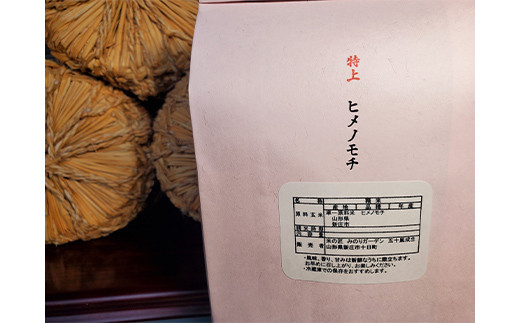 特上 ヒメノモチ
名称 精米
産地 品種 年産
原料玄米 単一原料米 ヒメノモチ
山形県
新庄市
内容量
販売者 米の匠 みのりガーデン 五十嵐
山形県新庄市十日町
・風味、香り、甘みは新鮮なうちに際立ちます。
お早めに召し上がり、お楽しみください。
・冷蔵庫での保存をおすすめします。